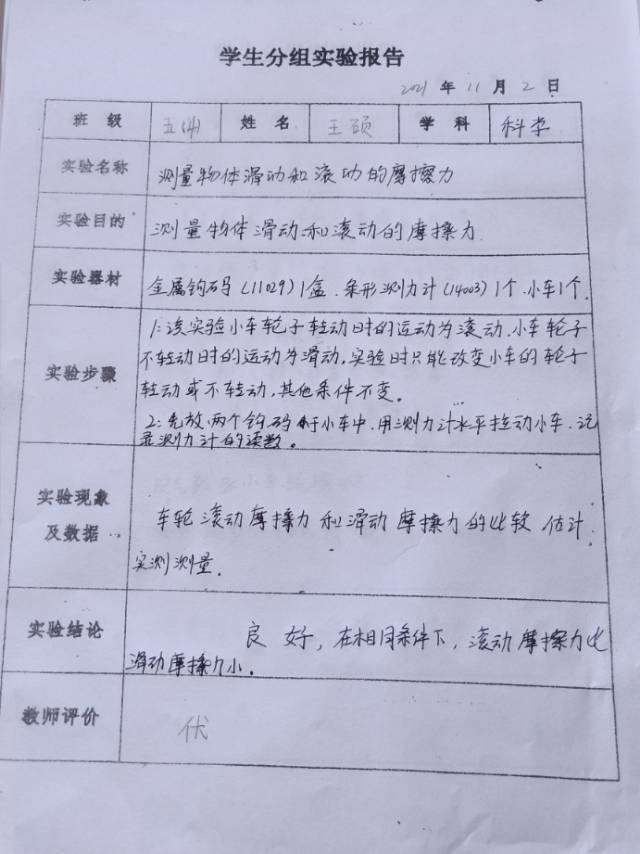 学生分组实验报告
2021 年 11 月 2 日
班 级 五(4) 姓 名 王硕 学 科 科学
实验名称 测量物体滑动和滚动的摩擦力
实验目的 测量物体滑动和滚动的摩擦力
实验器材 金属钩码(11029)1盒.条形测力计(14003)1个.小车1个.
1:该实验小车轮子转动时的运动为滚动.小车轮子
不转动时的运动为滑动,实验时只能改变小车的轮子
实验步骤
转动或不转动,其他条件不变。
2:先放两个钩码于小车中.用测力计水平拉动小车.记
录测力计的读数。
实验现象
及数据
车轮滚动摩擦力和滑动摩擦力的比较 估计.
实测测量.
实验结论
良好,在相同条件下,滚动摩擦力比
滑动摩擦力小.
教师评价 优